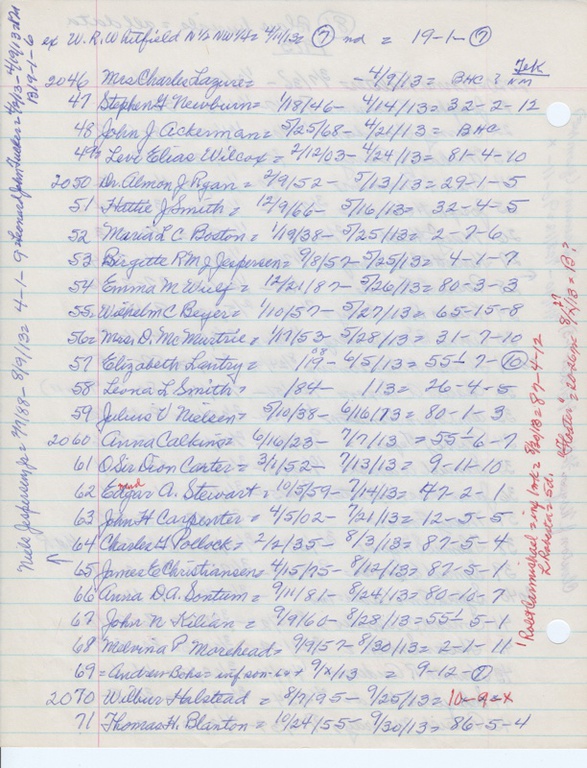 ex W. R. Whitfield N½ NW¼ = 4/11/13 = ⑦ nd = 19-1-⑦
JeK
2046 Mrs Charles Lazure = -4/9/13 = BHC ? NM
47 Stephen H Newburn = 1/18/46- 4/14/13 = 32-2-12
48 John J Ackerman = 5/25/68- 4/21/13 = BHC
49 Levi Elias Wilcox = 2/12/03- 4/24/13 = 81-4-10
2050 Dr. Almon J. Ryan = 2/9/52- 5/13/13 = 29-1-5
51 Hattie J. Smith = 12/9/66- 5/16/13 = 32-4-5
52 Maria L C. Boston = 1/19/38- 5/25/13 = 2-7-6
53 Birgotte R M J Jespersen = 9/8/57- 5/25/13 = 4-1-7
54 Emma M. Wulf = 12/21/87- 5/26/13 = 80-3-3
55 Wilhelm C Beyer = 1/10/57- 5/27/13 = 65-15-8
56 Mrs. D. McMurtrie = 1/17/53- 5/28/13 = 31-7-10
57 Elizabeth = /19 08- 6/5/13 = 55½-7-⑩
58 Leona L Smith = /84- /13 = 26-4-5
59 Julius V Nielsen = 5/10/38- 6/16/13 = 80-1-3
2060 Anna Calkins = 6/16/23- 7/7/13 = 55½-6-7
61 O Sir Dion Carter = 3/1/52- 7/13/13 = 9-11-10
62 Edgar A. Stewart = 10/5/59- 7/14/13 = 47-2-1
63 John H Carpenter = 4/5/02- 7/21/13 = 12-5-5
64 Charles H Pollock = 2/2/35- 8/3/13 = 87-5-4
65 James C Christiansen = 4/15/75- 8/12/13 = 87-5-1
66 Anna D. A. Sontum = 9/11/81- 8/24/13 = 80-10-7
67 John N Kilian = 9/9/60- 8/28/13 = 55½-5-1
68 Melvina P Morehead = 9/9/57- 8/30/13 = 2-1-11
69 = Andrew Boks = inf son 9/x/13 = 9-12-⑦
2070 Wilbur Halstead = 8/7/95- 9/25/13 = 10-9-x
71 Thomas H. Blanton = 10/24/55- 9/30/13 = 86-5-4
Niels Jespersen = 7/7/88- 8/9/13 = 4-1-9
Leonard John = 4/3/13- 4/19/13 = NM
13/9-1-6
= 5/20/13 = 87-4-12